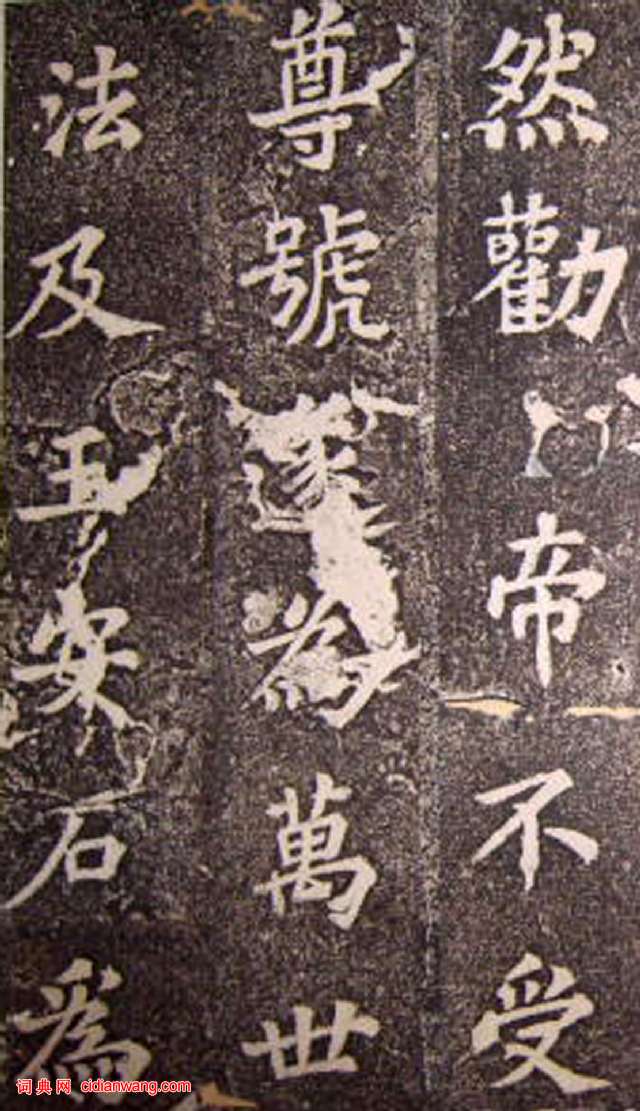 然勸帝不受
尊號遂為萬世
法及王安石爲
词典网 cidianwang.com